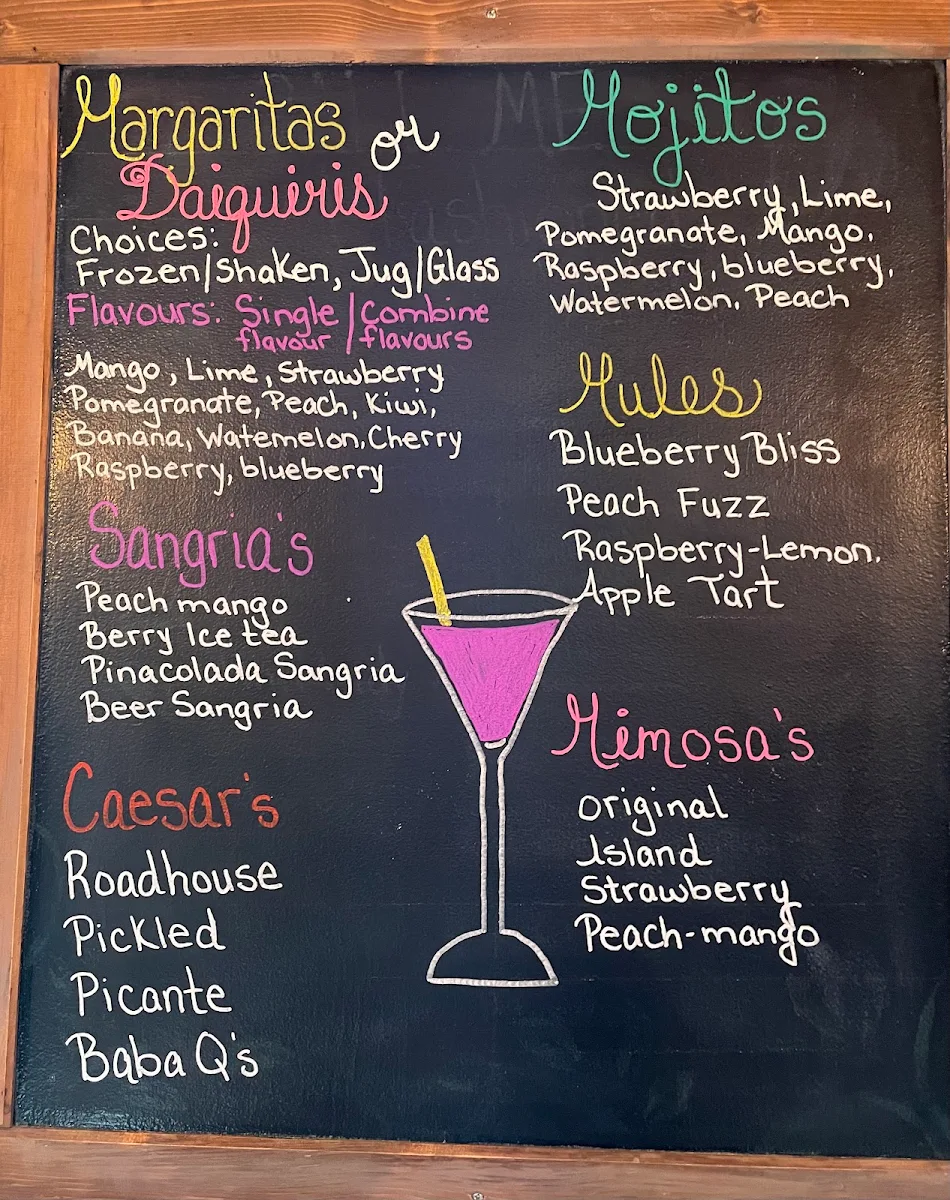 Margaritas or
Daiquiris
Choices:
Frozen/Shaken, Jug/Glass
Flavours: Single / Combine
flavour / flavours
Mango, Lime, Strawberry
Pomegranate, Peach, Kiwi,
Banana, Watemelon, Cherry
Raspberry, blueberry
Sangria's
Peach mango
Berry Ice tea
Pinacolada Sangria
Beer Sangria
Caesar's
Roadhouse
Pickled
Picante
Baba Q's
Mojitos
Strawberry, Lime,
Pomegranate, Mango,
Raspberry, blueberry,
Watermelon, Peach
Mules
Blueberry Bliss
Peach Fuzz
Raspberry-Lemon.
Apple Tart
Mimosa's
Original
Island
Strawberry
Peach-mango